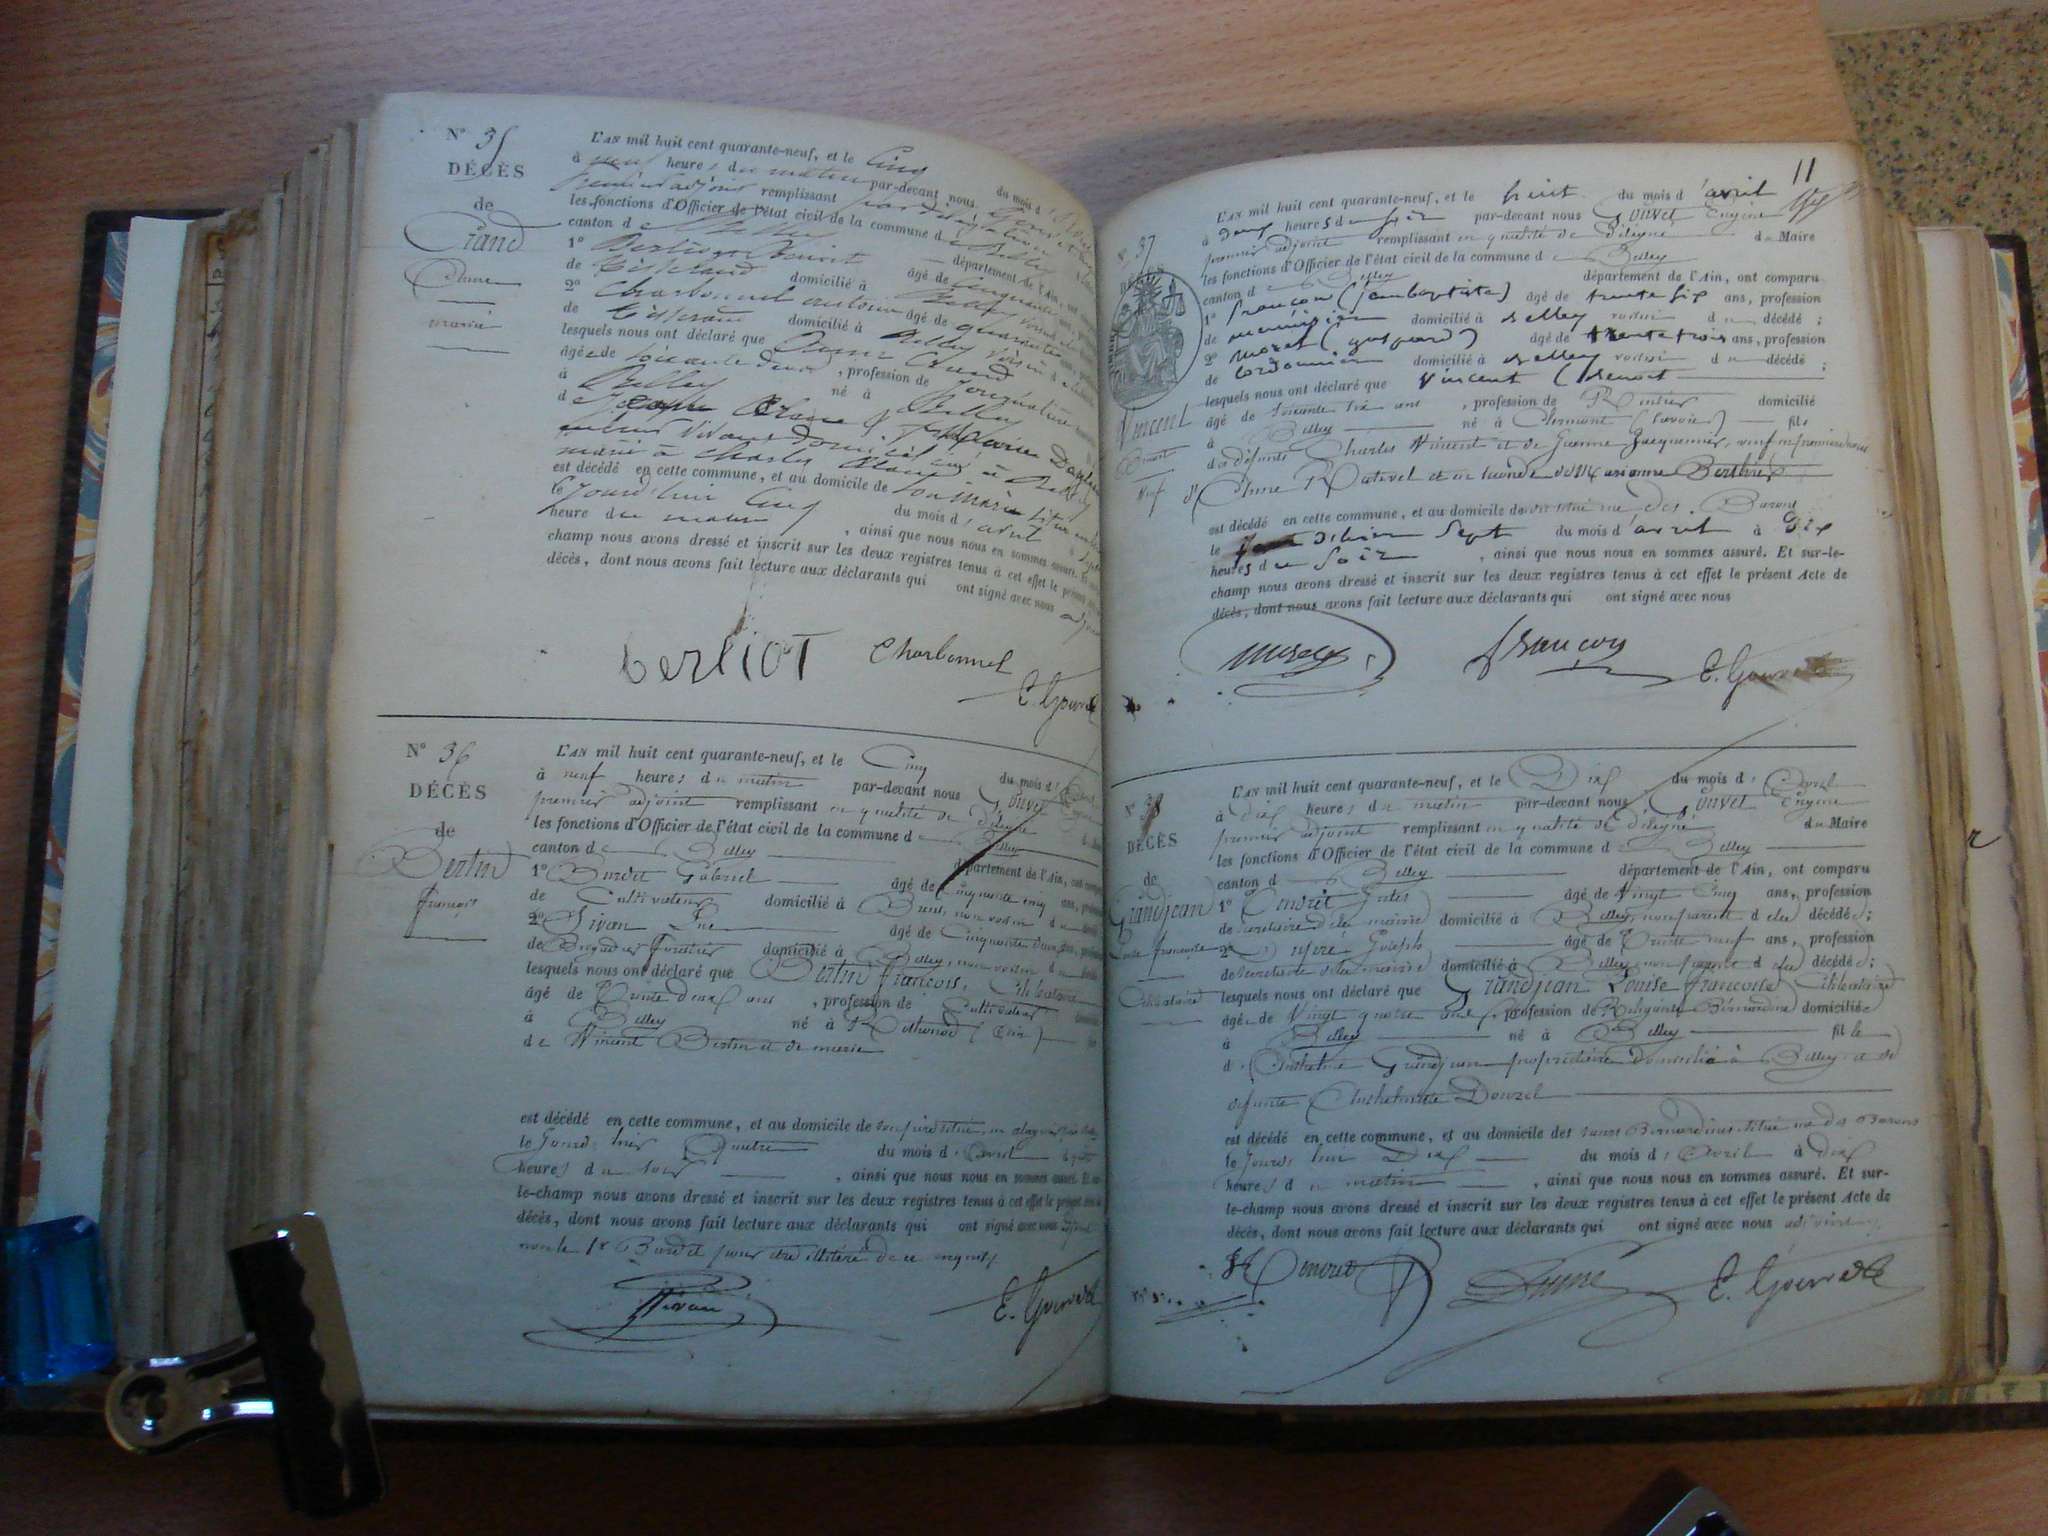 N° 35
DÉCÈS
de
Crand
mariée
L'AN mil huit cent quarante-neuf, et le Cinq du mois d'
à neuf heures du matin par-devant nous
premier adjoint remplissant par délégation
les fonctions d'Officier de l'état civil de la commune de Belley
canton de Belley département de l'Ain, ont
1° Berliot Benoit âgé de cinquante
de Tisserand domicilié à Belley voisin
2° Charbonnel antoine âgé de quarante
de Tisserand domicilié à Belley voisin
lesquels nous ont déclaré que Crand
âgée de soixante deux, profession de
à Belley né à Belley
de
mariée à Charles
est décédé en cette commune, et au domicile de son mari
le Jourd'hui Cinq du mois d'avril à
heure du matin, ainsi que nous nous en sommes assuré. Et
champ nous avons dressé et inscrit sur les deux registres tenus à cet effet le présent
décès, dont nous avons fait lecture aux déclarants qui ont signé avec nous
berlioT Charbonnel
E. Gouvet
N° 36
DÉCÈS
de
Bertin
françois
L'AN mil huit cent quarante-neuf, et le Cinq du mois d' Avril
à neuf heures du matin par-devant nous Gouvet Eugène
premier adjoint remplissant en qualité de Délégué
les fonctions d'Officier de l'état civil de la commune de Belley
canton de Belley département de l'Ain, ont
1° Burdet Gabriel âgé de Cinquante cinq ans,
de Cultivateur domicilié à Brens, non voisin
2° Sivan âgé de Cinquante deux ans,
de domicilié à Belley, non voisin
lesquels nous ont déclaré que Bertin François, Célibataire
âgé de Trente deux ans, profession de Cultivateur
à Belley né à Rothonod (Ain)
de Vincent Bertin et de marie
est décédé en cette commune, et au domicile de son père situé
le Jourd'hier Quatre du mois d' Avril à
heures du soir, ainsi que nous nous en sommes assuré. Et
le-champ nous avons dressé et inscrit sur les deux registres tenus à cet effet le présent
décès, dont nous avons fait lecture aux déclarants qui ont signé avec nous
non le 1er Burdet pour être illitéré de ce enquis
Sivan E. Gouvet
11
N° 37
DÉCÈS
Vincent
Benoit
Veuf
L'AN mil huit cent quarante-neuf, et le huit du mois d'avril
à deux heures du soir par-devant nous Gouvet Eugène
premier adjoint remplissant en qualité de Délégué du Maire
les fonctions d'Officier de l'état civil de la commune de Belley
canton de Belley département de l'Ain, ont comparu
1° françon (jean baptiste) âgé de trente six ans, profession
de menuisier domicilié à Belley voisin du décédé;
2° morel (gaspard) âgé de trente trois ans, profession
de Cordonnier domicilié à Belley voisin du décédé;
lesquels nous ont déclaré que Vincent (Benoit
âgé de soixante six ans, profession de Rentier domicilié
à Belley né à Clermont (Savoie) fils
des défunts Charles Vincent et de Jacquemier, veuf en premières
d'Anne Ratevel et en seconde de Marianne Berthier
est décédé en cette commune, et au domicile de rue des Barons
le d'hier Sept du mois d'avril à Dix
heures du soir, ainsi que nous nous en sommes assuré. Et sur-le-
champ nous avons dressé et inscrit sur les deux registres tenus à cet effet le présent Acte de
décès, dont nous avons fait lecture aux déclarants qui ont signé avec nous
morel françon E. Gouvet
N° 38
DÉCÈS
de
Grandjean
Louise françoise
Célibataire
L'AN mil huit cent quarante-neuf, et le Dix du mois d' Avril
à dix heures du matin par-devant nous Gouvet Eugène
premier adjoint remplissant en qualité de Délégué du Maire
les fonctions d'Officier de l'état civil de la commune de Belley
canton d Belley département de l'Ain, ont comparu
1° âgé de Vingt Cinq ans, profession
de secrétaire de la mairie domicilié à Belley, non parent de la décédé;
2° Joseph âgé de Trente neuf ans, profession
de secrétaire de la mairie domicilié à Belley, non parent de la décédé;
lesquels nous ont déclaré que Grandjean Louise françoise Célibataire
âgée de Vingt quatre ans, profession de Religieuse Bernardine domiciliée
à Belley né à Belley fille
d' Anthelme Grandjean propriétaire Domicilié à Belley et de
défunte Anthelmette Douzel
est décédé en cette commune, et au domicile des sœurs Bernardines situé rue des Barons
le Jourd'hui Dix du mois d' Avril à dix
heures du matin, ainsi que nous nous en sommes assuré. Et sur-
le-champ nous avons dressé et inscrit sur les deux registres tenus à cet effet le présent Acte de
décès, dont nous avons fait lecture aux déclarants qui ont signé avec nous adjoint
E. Gouvet